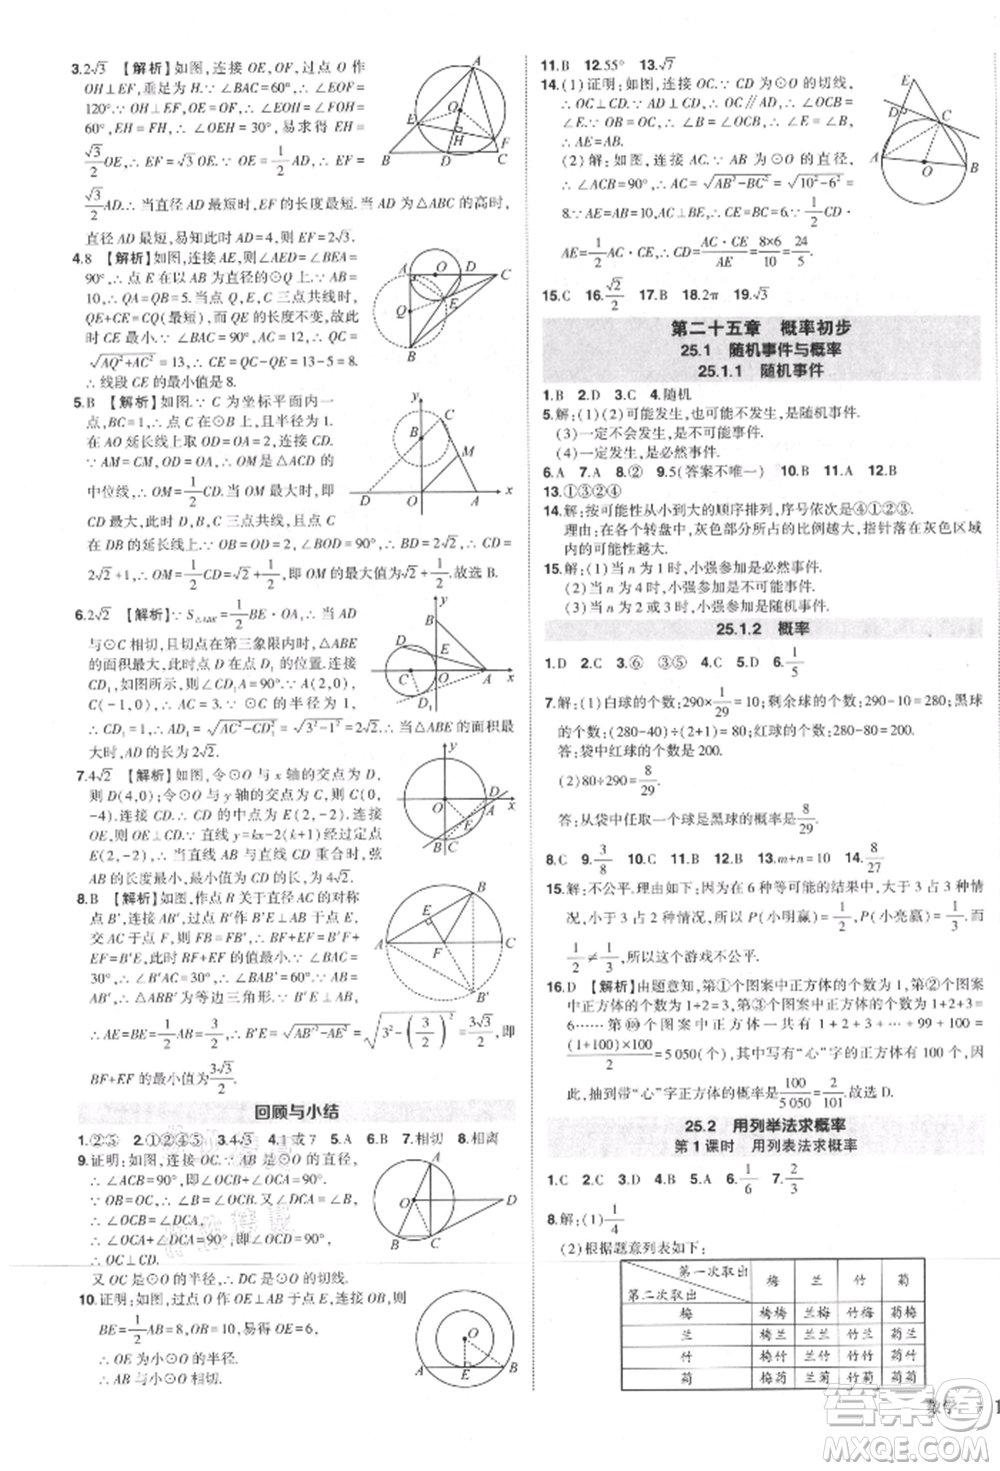 3.2√3 【解析】如图,连接 OE,OF,过点 O 作
OH⊥EF,垂足为 H.∵∠BAC=60°,∴∠EOF=
120°∵OH⊥EF,∴∠EOH=∠FOH=
60°,EH=FH,∴∠OEH=30°,易求 EH=
√3/2 OE,∴EF=√3 OE.∵OE=1/2 AD,∴EF=
√3/2 AD.∴当直径 AD 最短时,EF 的长度最短.当 AD 为△ABC 的高时,
直径 AD 最短,易知此时 AD=4,则有 EF=2√3.
4.8 【解析】如图,连接 AE,∵∠AED=∠BEA=
90°,∴点 E 在以 AB 为直径的⊙Q 上,∵AB=
10,∴QA=QB=5.当点 Q,E,C 三点共线时,
QE+CE=CQ(最短).∵QE 的长度不变,
∴此时 CE 最小.∵AC=12,∴QC=
√(AQ²+AC²)=13,∴CE=QC-QE=13-5=8,
∴线段 CE 的最小值是 8.
5.B 【解析】如图,∵C 为坐标平面内一点,
BC=1,∴点 C 在⊙B 上,且半径为 1.在
AO 延长线上取 OD=OA=2,连接 CD,
∵AM=CM,OD=OA,∴OM 是△ACD 的
中位线,∴OM=1/2 CD,当 OM 最大时,即
CD 最大,此时 D,B,C 三点共线,且点 C
在 DB 的延长线上.∵OB=OD=2,∠BOD=90°,∴BD=2√2,∴CD=
2√2+1,∴OM=1/2 CD=√2+1/2,即 OM 的最大值为√2+1/2.故选 B.
6.2√2 【解析】∵S△ABE=1/2 BE·OA,∴当 AD
与⊙C 相切,且切点在第三象限内时,△ABE
的面积最大,此时点 D 在点 D₁ 的位置.连接
CD₁,如图所示,则∠AD₁C=90°.∵A(2,0),
C(-1,0),∴AC=3.∵⊙C 的半径为 1,
∴CD₁=1,∴AD₁=√(AC²-CD₁²)=√(3²-1²)=2√2,∴当△ABE 的面积最
大时,AD 的长为 2√2.
7.4√2 【解析】如图,令⊙O 与 x 轴的交点为
D(4,0);令⊙O 与 y 轴的交点为 C(0,
-4).连接 CD,作 OE⊥CD,∴∠COE=∠D
OE=45°.∵直线 y=kx-2(k+1)经过定点
E(2,-2),∴当直线 AB 与 CD 重合时,弦
AB 的长度最小,最小值为 4√2.
8.B 【解析】如图,作点 B 关于直径 AC 的对称
点 B′,过点 B′作 B′E⊥AB 于点 E,
交 AC 于点 F,连接 AB′,则此时 BF+EF=B′F+
EF=B′E,此时其值最小.∵∠BAC=30°,
∴∠B′AC=30°,∴∠BAB′=60°.∵AB=
AB′,∴△ABB′为等边三角形,∴AB′=AB=3,
∴AE=1/2 AB=3/2,∴B′E=√(AB′²-AE²)=√(3²-(3/2)²)=3√3/2,即
BF+EF 的最小值为3√3/2.
回顾与小结
1.②⑤ 2.①②④⑤ 3.4√3 4.1 或 7 5.A 6.B 7.相切 8.相离
9.证明:如图,连接 OC.∵AD=CD,∴∠DAC=∠DCA.
∵OB=OC,∴∠OCB=∠OBC.
∵∠ACB=90°,即∠OCA+∠OCB=90°,
∴∠OCB=∠DCA.
∴∠OCA+∠DCA=90°,即∠OCD=90°.
∴OC⊥CD.
又 OC 是⊙O 的半径,∴CD 是⊙O 的切线.
10.证明:如图,过点 O 作 OE⊥AB 于点 E,连接 OB,则
BE=1/2 AB=8,OB=10,易得 OE=6,
∴OE 为小⊙O 的半径.
∴AB 与小⊙O 相切.
11.B 12.55° 13.√7
14.(1)证明:如图,连接 OC.∵CD 为⊙O 的切线,
∴OC⊥CD.∵AE⊥CD,∴OC∥AE,
∴∠OCB=∠E.∵OB=OC,
∴∠OCB=∠B.∴∠B=∠E,
∴AE=AB.
(2)解:如图,∵AB 为⊙O 的直径,
∴∠ACB=90°,∴AC=√(AB²-BC²)=√(10²-6²)=
8.∵AE=AB,AC⊥BE,∴CE=BC=6.∵1/2 CD·
AE=1/2 AC·CE,∴CD=AC·CE/AE=8×6/10=24/5
15.C 16.√2/2 17.B 18.2π 19.√3
第二十五章 概率初步
25.1 随机事件与概率
25.1.1 随机事件
1.B 2.D 3.C 4.随机
5.解:(1)(2)可能发生,也可能不发生,是随机事件.
(3)一定不会发生,是不可能事件.
(4)一定会发生,是必然事件.
6.A 7.A 8.② 9.5(答案不唯一) 10.B 11.A 12.B
13.①③②④
14.解:按可能性从小到大的顺序排列,序号依次是④①②③.
理由:在各个转盘中,灰色部分所占的比例越大,指针落在灰色区域
内的可能性越大.
15.解:(1)当 n 为 1 时,小强参加是必然事件.
(2)当 n 为 4 时,小强参加是不可能事件.
(3)当 n 为 2 或 3 时,小强参加是随机事件.
25.1.2 概率
1.D 2.C 3.6 4.⑥ ③⑤ 5.D 6.1/5
7.解:(1)白球的个数:290×1/29=10;剩余球的个数:290-10=280;黑球
的个数:(280-40)÷(2+1)=80;红球的个数:280-80=200.
答:袋中红球的个数是 200.
(2)80÷290=8/29.
答:从袋中任取一个球是黑球的概率是8/29.
8.C 9.3/8 10.C 11.D 12.B 13.m+n=10 14.8/27
15.解:不公平.理由如下:∵在 6 种等可能的结果中,大于 3 占 3 种情
况,小于 3 占 2 种情况,∴P(小明赢)=1/2,P(小亮赢)=1/3.
∵1/2≠1/3,所以这个游戏不公平.
16.D 【解析】由题意知,第①个图案中正方体的个数为 1,第②个图案
中正方体的个数为 1+2=3,第③个图案中正方体的个数为 1+2+3=
6……第⑩⓪个图案中正方体一共有 1+2+3+…+99+100=
(1+100)×100/2=5 050(个),其中写有“心”字的正方体有 100 个,因
此,抽到带“心”字正方体的概率是100/5 050=2/101.故选 D.
25.2 用列举法求概率
第 1 课时 用列表法求概率
1.C 2.C 3.A 4.B 5.D 6.1/6 7.2/3
8.解:(1)1/4
(2)根据题意列表如下:
第一次取出 第二次取出 梅 兰 竹 菊
梅 梅梅 兰梅 竹梅 菊梅
兰 梅兰 兰兰 竹兰 菊兰
竹 梅竹 兰竹 竹竹 菊竹
菊 梅菊 兰菊 竹菊 菊菊
数学
答案圈
MXQE.COM